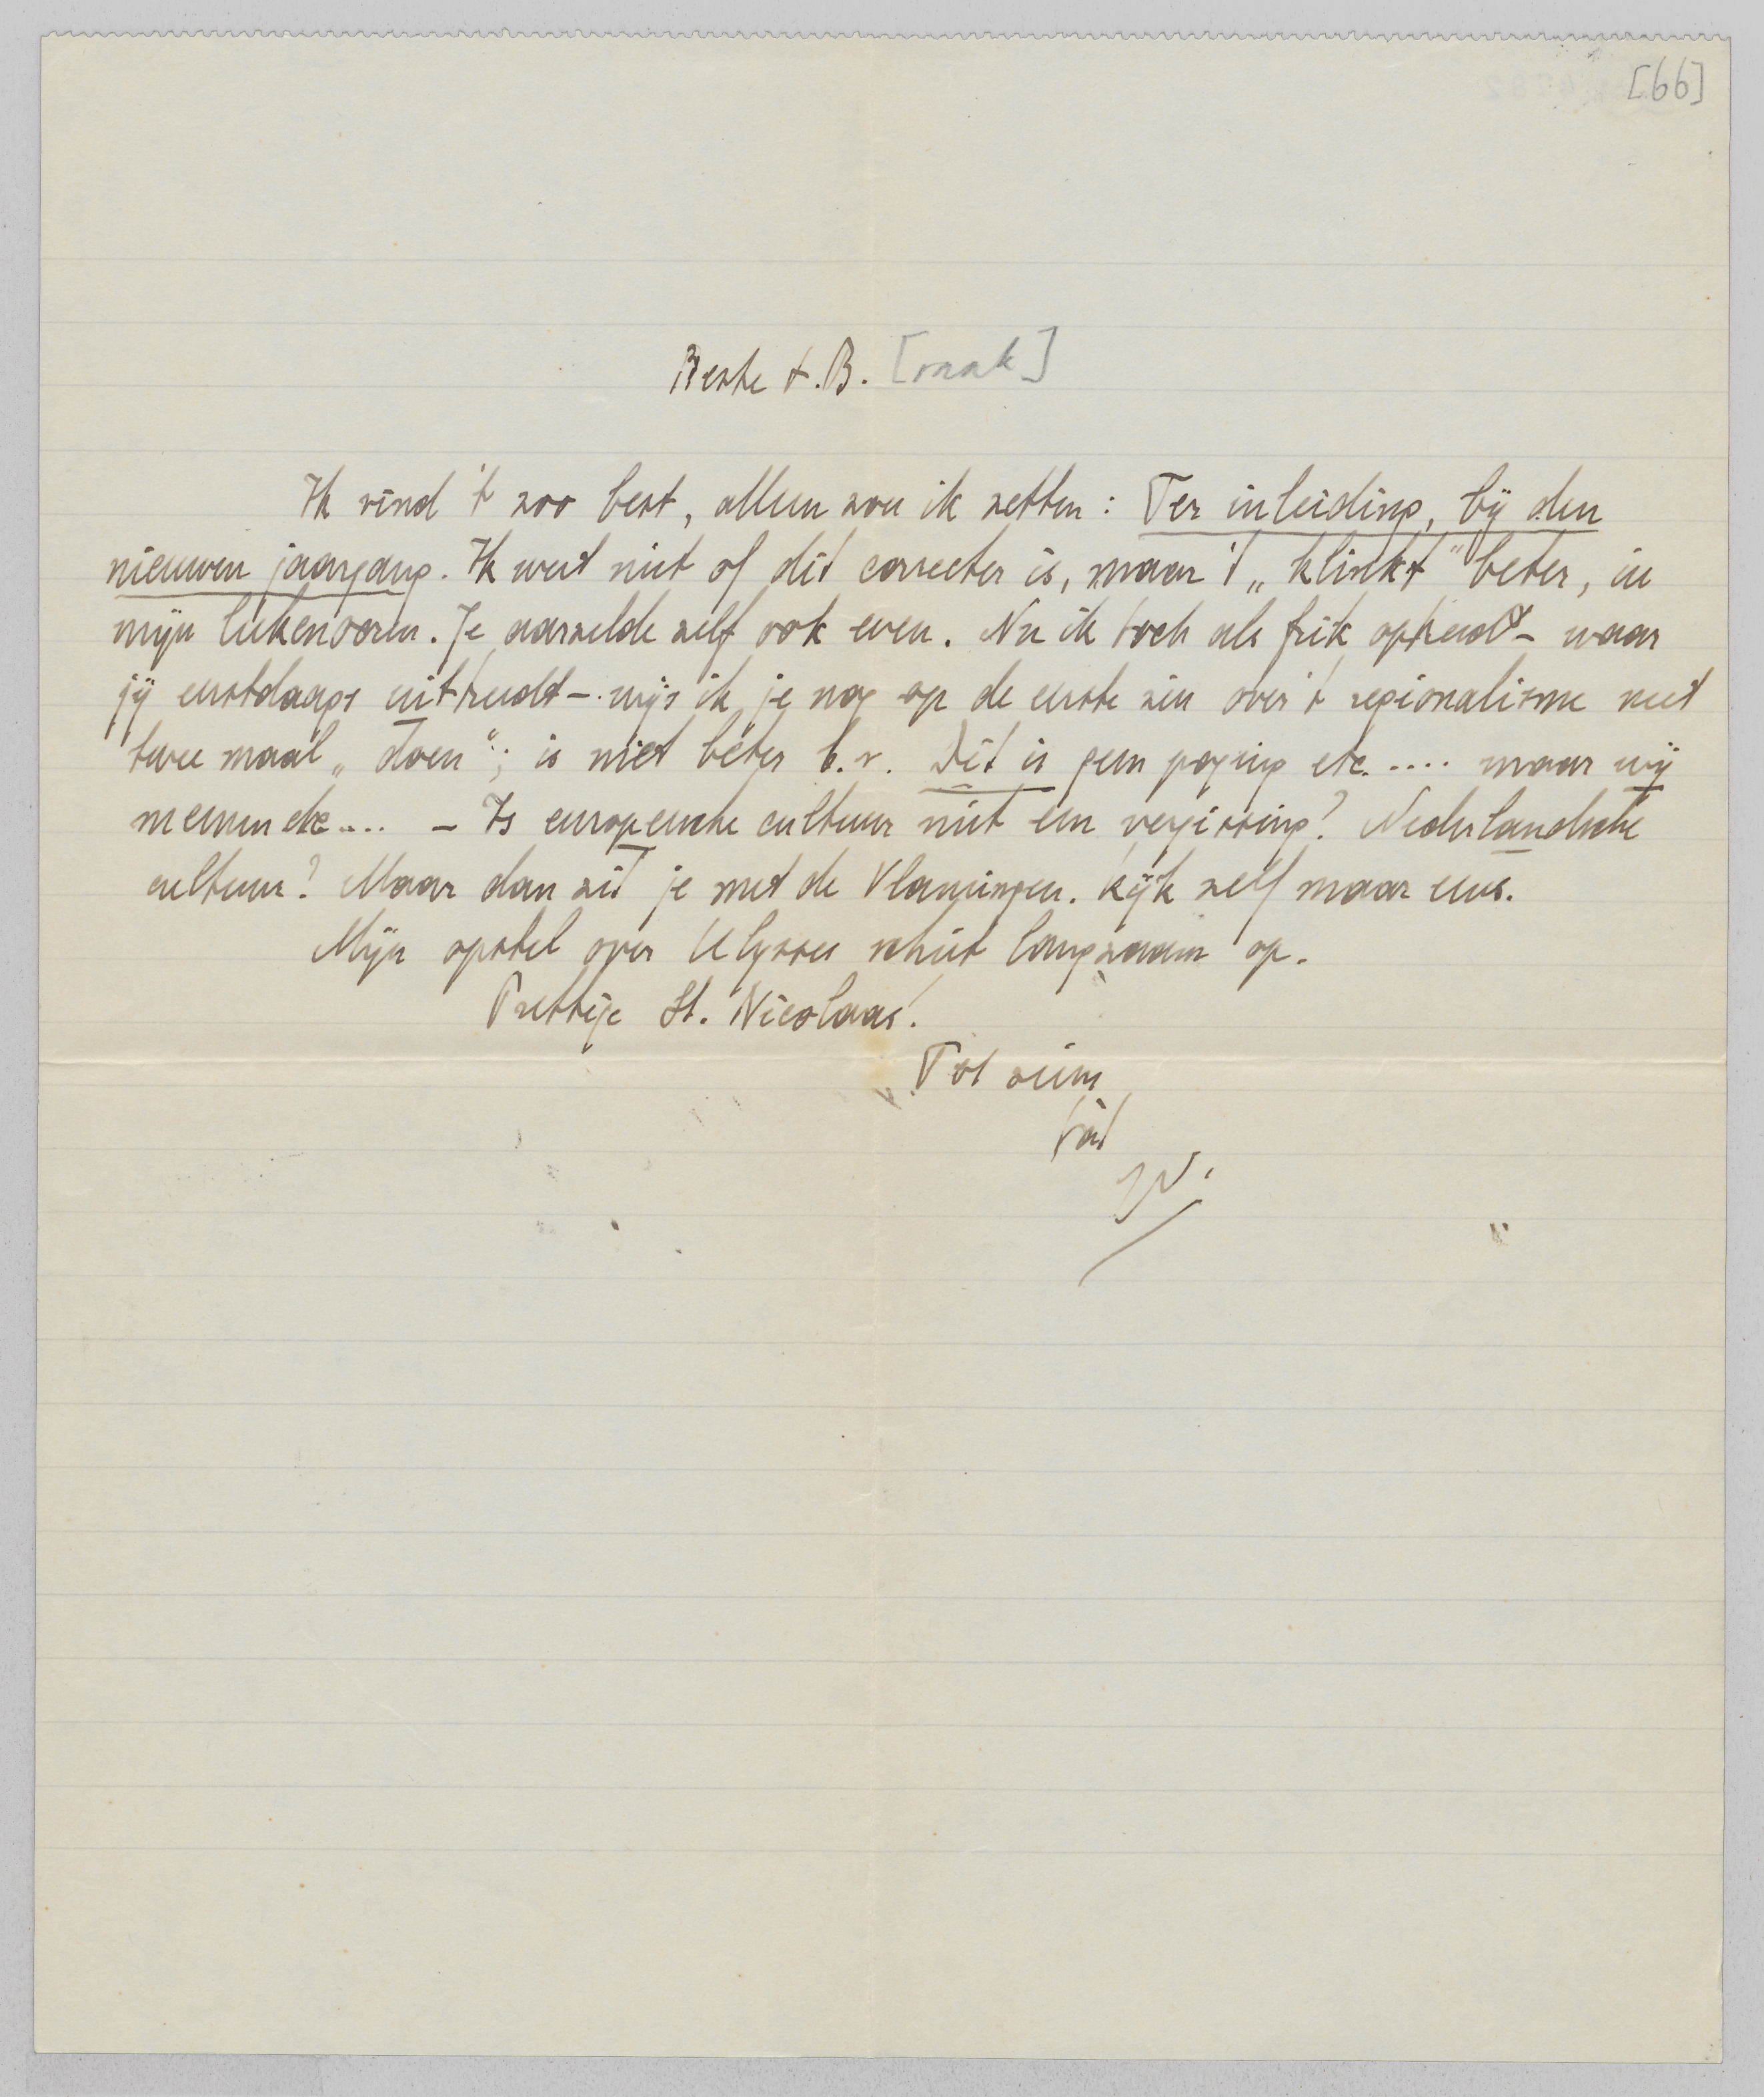 [66]
Beste t.B. [raak]
Ik vind 't zoo best, alleen zou ik zetten: Ter inleiding, bij den
nieuwen jaargang. Ik weet niet of dit correcter is, maar 't „klinkt" beter, in
mijn leekenooren. Je aarzelde zelf ook even. Nu ik toch als frik optreedt – waar
jij eerstdaags uittreedt – wijs ik je nog op de eerste zin over 't regionalisme met
twee maal „doen"; is niet beter b.v. Dit is geen poging etc. .... maar wij
meenen etc .... – Is europeesche cultuur niet een vergissing? Nederlandsche
cultuur? Maar dan zit je met de Vlamingen. Kijk zelf maar eens.
Mijn opstel over Ulysses schiet langzaam op.
Prettige St. Nicolaas!
Tot ziens